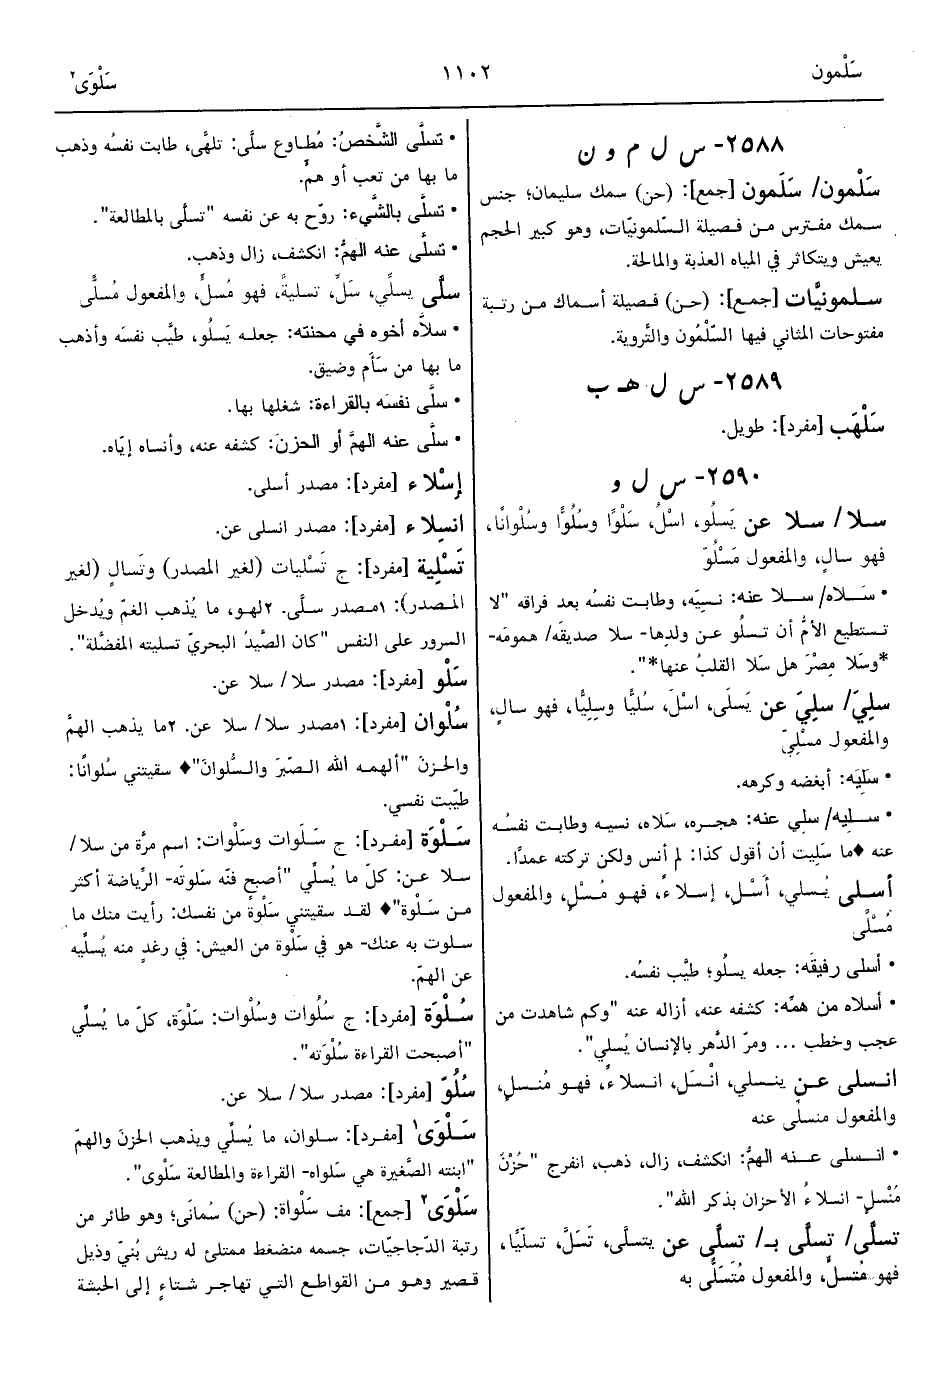 سَلْمون
١١٠٢
سَلْوَى٢
٢٥٨٨- س ل م و ن
سَلْمون/ سَلَمون [جمع]: (حن) سمك سليمان؛ جنس
سمك مفترس من فصيلة السّلمونيّات، وهو كبير الحجم
يعيش ويتكاثر في المياه العذبة والمالحة.
سلمونيَّات [جمع]: (حن) فصيلة أسماك من رتبة
مفتوحات المثاني فيها السّلْمُون والتَّروية.
٢٥٨٩- س ل هـ ب
سَلْهَب [مفرد]: طويل.
٢٥٩٠- س ل و
سلا/ سلا عن يَسلُو، اسْلُ، سَلْوًا وسُلُوًّا وسُلْوانًا،
فهو سالٍ، والمفعول مَسْلُوّ
• سَلاه/ سلا عنه: نسيَه، وطابت نفسُه بعد فراقه "لا
تستطيع الأمُّ أن تسلُو عن ولدِها- سلا صديقَه/ همومَه-
*وسَلا مِصْرَ هل سَلا القلبُ عنها*".
سلِيَ/ سلِيَ عن يَسلَى، اسْلَ، سُليًّا وسِليًّا، فهو سالٍ،
والمفعول مسْلِيّ
• سَلَيَه: أبغضه وكرهه.
• سليه/ سلي عنه: هجره، سَلاه، نسيه وطابت نفسُه
عنه ♦ما سَلِيت أن أقول كذا: لم أنس ولكن تركته عمدًا.
أسلى يُسلي، أَسْلِ، إسلاءً، فهو مُسْلٍ، والمفعول
مُسْلًى
• أسلى رفيقَه: جعله يسلُو؛ طيَّب نفسُه.
• أسلاه من همِّه: كشفه عنه، أزاله عنه "وكم شاهدت من
عجب وخطب ... ومرّ الدَّهر بالإنسان يُسلي".
انسلى عن ينسلي، انْسَلِ، انسلاءً، فهو مُنسلٍ،
والمفعول منسلًى عنه
• انسلى عنه الهمُّ: انكشف، زال، ذهب، انفرج "حُزْنٌ
مُنْسلٍ- انسلاءُ الأحزان بذكر الله".
تسلَّى/ تسلَّى بـ/ تسلَّى عن يتسلَّى، تَسَلَّ، تسليًّا،
فهو مُتسلٍّ، والمفعول مُتَسلًّى به
• تسلَّى الشَّخصُ: مُطاوع سلَّى: تلهَّى، طابت نفسُه وذهب
ما بها من تعب أو همٍّ.
• تسلَّى بالشَّيء: روّح به عن نفسه "تسلَّى بالمطالعة".
• تسلَّى عنه الهمُّ: انكشف، زال وذهب.
سلَّى يسلّي، سَلِّ، تسليةً، فهو مُسلٍّ، والمفعول مُسلًّى
• سلاَّه أخوه في محنته: جعله يَسلُو، طيَّب نفسَه وأذهب
ما بها من سَأَم وضيق.
• سلَّى نفسَه بالقراءة: شغلها بها.
• سلَّى عنه الهمَّ أو الحزنَ: كشفه عنه، وأنساه إيَّاه.
إسْلاء [مفرد]: مصدر أسلى.
انسِلاء [مفرد]: مصدر انسلى عن.
تَسْلِية [مفرد]: ج تَسْليات (لغير المصدر) وتَسالٍ (لغير
المصدر): ١مصدر سلَّى. ٢لهو، ما يُذهب الغمّ ويُدخل
السرور على النفس "كان الصَّيدُ البحريّ تسليته المفضَّلة".
سَلْو [مفرد]: مصدر سلا/ سلا عن.
سُلْوان [مفرد]: ١مصدر سلا/ سلا عن. ٢ما يذهب الهمَّ
والحزنَ "ألهمه الله الصّبَر والسُّلوان"♦ سقيتني سُلوانًا:
طيّبت نفسي.
سَلْوَة [مفرد]: ج سَلَوات وسَلْوات: اسم مرَّة من سلا/
سلا عن: كلّ ما يُسلِّي "أصبح فنّه سَلوتَه- الرِّياضة أكثر
من سَلْوة"♦ لقد سقيتني سَلْوة من نفسك: رأيت منك ما
سلوت به عنك- هو في سَلْوة من العيش: في رغدٍ منه يُسلِّيه
عن الهمّ.
سُلْوَة [مفرد]: ج سُلُوات وسُلْوات: سَلْوَة، كلّ ما يُسلِّي
"أصبحت القراءة سُلْوَته".
سُلُوّ [مفرد]: مصدر سلا/ سلا عن.
سَلْوَى١ [مفرد]: سلوان، ما يُسلِّي ويذهب الحزنَ والهمّ
"ابنته الصَّغيرة هي سَلواه- القراءة والمطالعة سَلْوى".
سَلْوَى٢ [جمع]: مف سَلْواة: (حن) سُمانى؛ وهو طائر من
رتبة الدّجاجيّات، جسمه منضغط ممتلئ له ريش بُنيّ وذيل
قصير وهو من القواطع التي تهاجر شتاءً إلى الحبشة